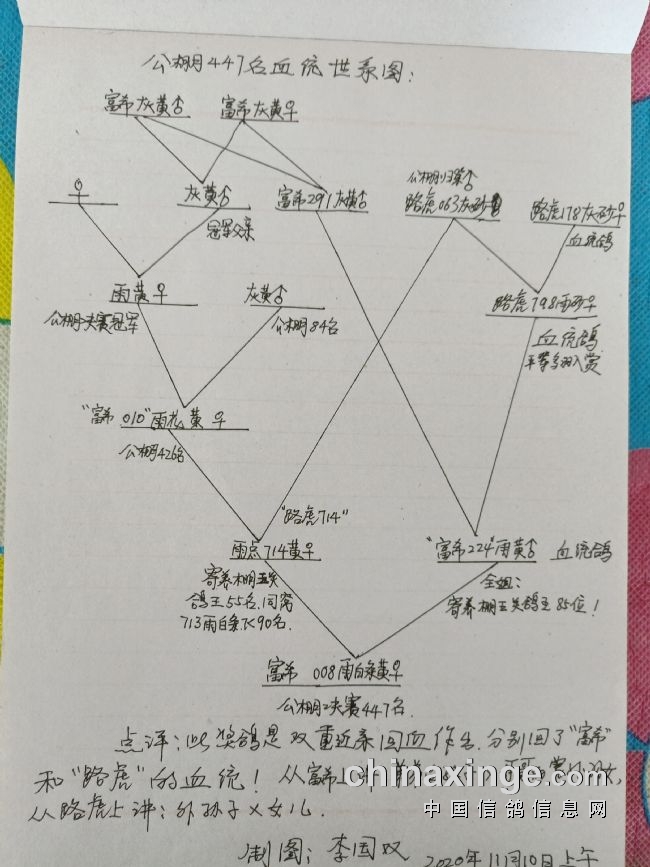 公棚447名血统世系图：
富希灰黄♂ 富希灰黄♀
公棚归巢♂
灰黄♂ 富希291灰黄♂ 路虎063灰砂 路虎178灰砂♀
冠军父亲 血统鸽
雨黄♀ 灰黄♂ 路虎798雨砂♀
公棚决赛冠军 公棚84名 血统鸽
平等多羽入赏
"富希 010"雨花黄♀
公棚426名
"路虎714"
雨点714黄♀ "富希224"雨黄♂ 血统鸽
寄养棚五关 全姐：
鸽王55名.同窝 寄养棚五关鸽王85位！
713雨白条飞90名.
富希 008雨白条黄♀
公棚决赛447名.
点评：此奖鸽是双重近亲回血作出.分别回了"富希"
和"路虎"的血统！从富希上讲
从路虎上讲：外孙子X女儿.
chinaxinge.com
中国信鸽信息网
制图：李国双 2020年11月10日上午